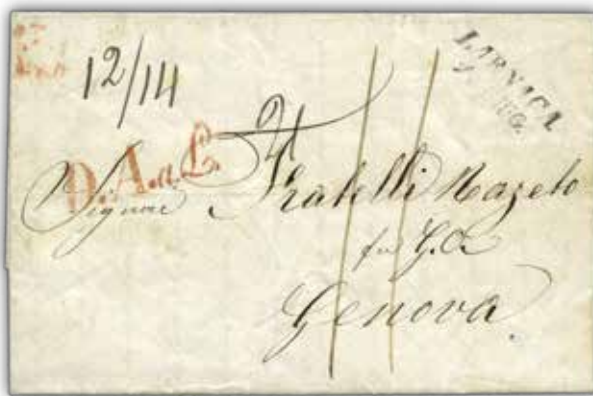 12/14
LARNACA
AUG.
D. A. ALL.
Signori Fratelli Razeto
fu G. B.
Genova